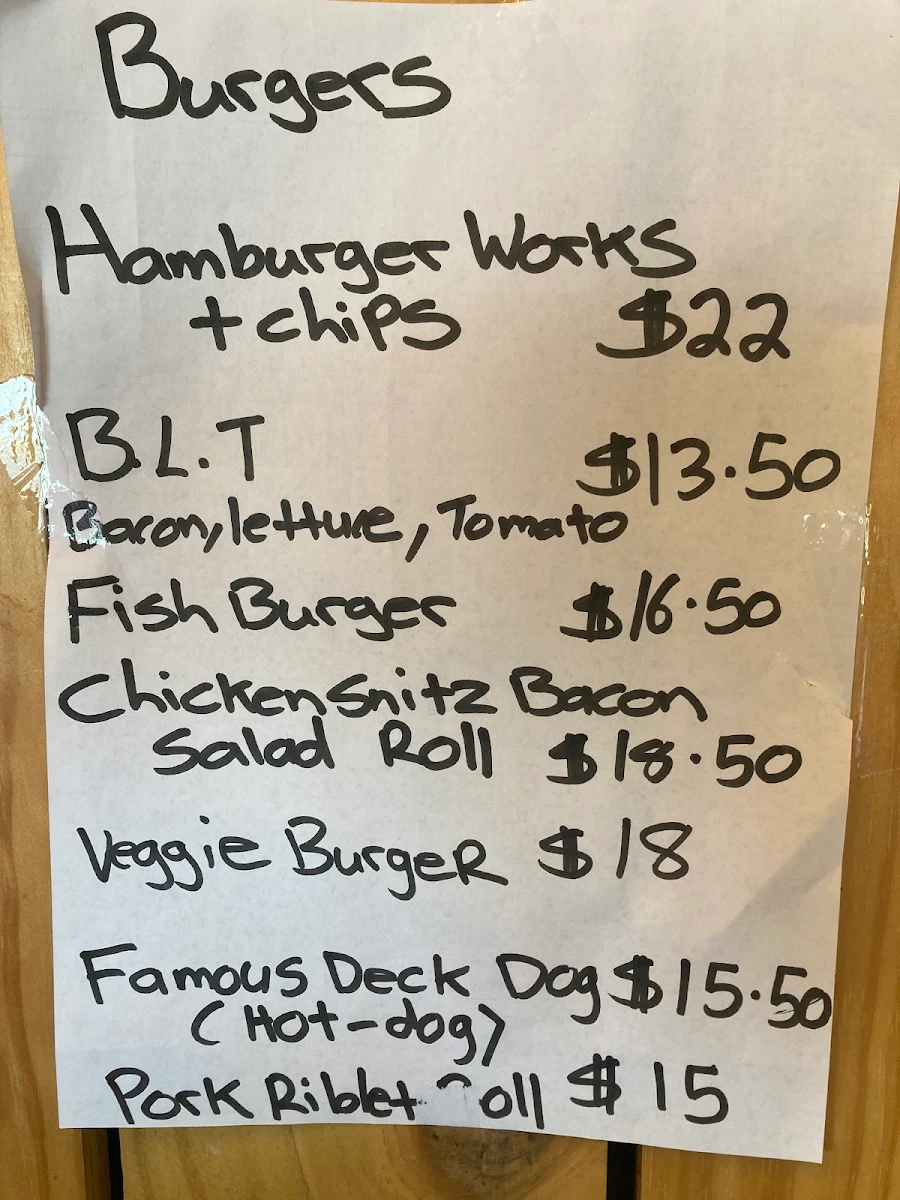 Burgers
Hamburger Works
+ chips $22
B.L.T $13.50
Bacon, letture, Tomato
Fish Burger $16.50
Chicken Snitz Bacon
Salad Roll $18.50
Veggie Burger $18
Famous Deck Dog $15.50
(Hot-dog)
Pork Riblet oll $15